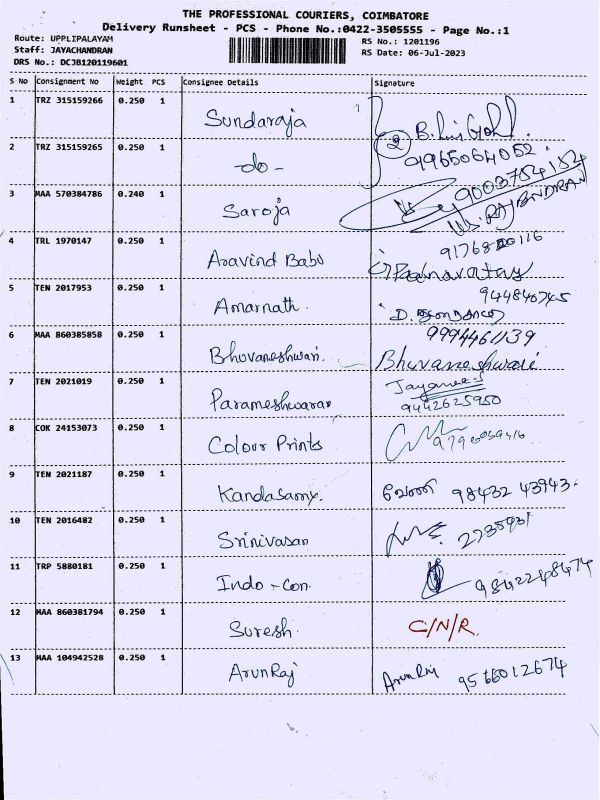 THE PROFESSIONAL COURIERS, COIMBATORE
Delivery Runsheet - PCS - Phone No.:0422-3505555 - Page No.:1
Route: UPPLIPALAYAM
RS No.: 1201196
Staff: JAYACHANDRAN
RS Date: 06-Jul-2023
DRS No.: DCJB120119601
S No Consignment No Weight PCS Consignee Details Signature
1 TRZ 315159266 0.250 1 Sundaraja
2 TRZ 315159265 0.250 1 -do- 2 9965064052
3 MAA 570384786 0.240 1 Saroja 9003754184
4 TRL 1970147 0.250 1 Aravind Babu
5 TEN 2017953 0.250 1 Amarnath.
6 MAA 860385858 0.250 1 Bhuvaneshwari. 9994461139
Bhuvaneshwari
7 TEN 2021019 0.250 1 Parameshwaran
9442625950
8 COK 24153073 0.250 1 Colour Prints
9 TEN 2021187 0.250 1 Kandasamy. 98432 43943.
10 TEN 2016482 0.250 1 Srinivasan
11 TRP 5880181 0.250 1 Indo-Con. 9842248474
12 MAA 860381794 0.250 1 Suresh. C/N/R.
13 MAA 104942528 0.250 1 ArunRaj ArunRaj 9566012674